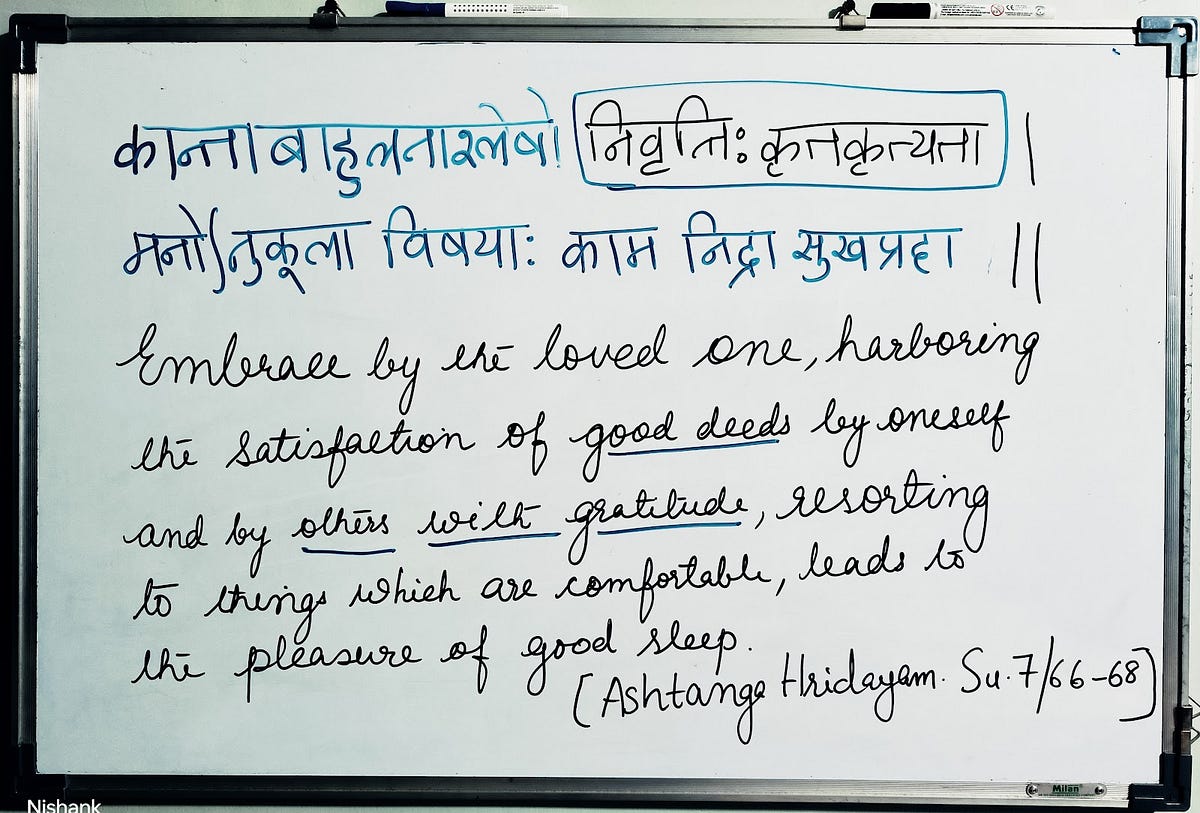 कान्ताबाहुलताश्लेषो निवृत्तिः कृतकृत्यता |
मनोऽनुकूला विषयाः काम निद्रा सुखप्रदा ||
Embrace by the loved one, harboring
the satisfaction of good deeds by oneself
and by others with gratitude, resorting
to things which are comfortable, leads to
the pleasure of good sleep.
(Ashtanga Hridayam. Su. 7/66-68)
Milan
Nishank